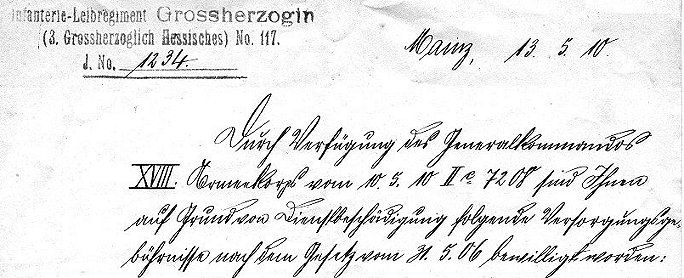 Infanterie-Leibregiment Grossherzogin
(3. Grossherzoglich Hessisches) No. 117.
J. No. 1234.
Mainz, 13. 5. 10.
Durch Verfügung des Generalkommandos
XVIII. Armeekorps vom 10. 5. 10 II c 7208 sind Ihnen
auf Grund von Dienstbeschädigung folgende Versorgungsge-
bührnisse nach dem Gesetz vom 31. 5. 06 bewilligt worden: